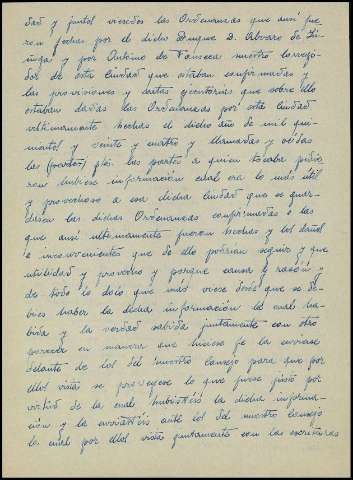 dad y juntos viesedes las Ordenanzas que ansi fue
ron fechas por el dicho Duque D. Alvaro de Zú
ñiga y por Antonio de Fonseca nuestro corregi
dor de esta ciudad que estaban confirmadas y
las provisiones y cartas ejecutorias que sobre ello
estaban dadas las Ordenanzas por esta ciudad
ultimamente hechas el dicho año de mil qui
nientos y veinte y cuatro y llamadas y oidas
las (partes) las partes a quien tocaba pidie
ron hubiese información cual era lo más útil
y provechoso a esa dicha ciudad que se guar-
dasen las dichas Ordenanzas confirmadas o las
que ansi ultimamente fueron hechas y los daños
e inconvenientes que de ello podrian seguir y que
utilidad y provecho y porque causa y razón y
de todo lo dolo que más viese deis que se de-
bies haber la dicha información la cual ha-
bida y la verdad sabida juntamente con otro
parecer en manera que hiciese fe la enviase
delante de los del nuestro consejo para que por
ellos vista se proveyese lo que fuese justo por
virtud de la cual hubisteis la dicha informa-
ción y la enviasteis ante los del nuestro consejo
lo cual por ellos visto juntamente con las escrituras